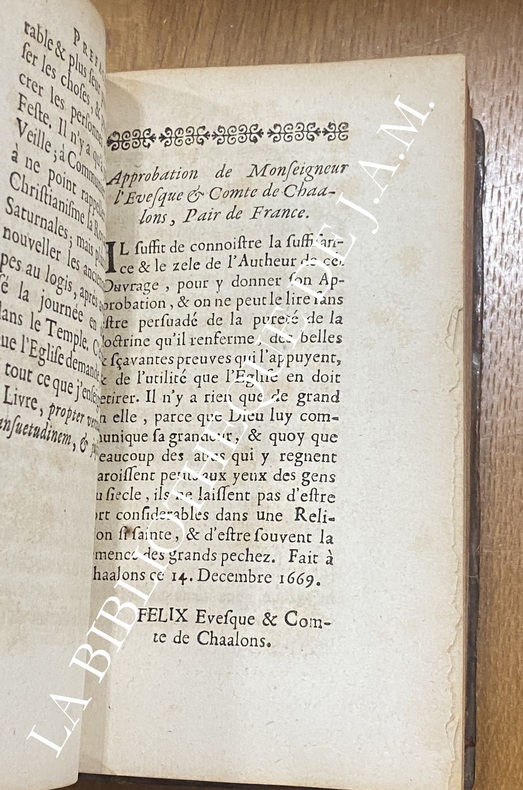 PREFA
table & plus seur
ser les choses, &
crer les personn
Feste. Il n'y a q
Veille; à Comm
à ne point rappo
Christianisme la
Saturnales; mais
nouveller les ancien
pes au logis, après
sé la journée en
dans le Temple.
ue l'Eglise demand
tout ce que j'ense
Livre, propter
nsuetudinem, &
Approbation de Monſeigneur
l'Eveſque & Comte de Chaa-
lons, Pair de France.
IL ſuffit de connoiſtre la ſuffiſan-
ce & le zele de l'Autheur de cet
Ouvrage, pour y donner ſon Ap-
probation, & on ne peut le lire ſans
eſtre perſuadé de la pureté de la
doctrine qu'il renferme, des belles
& ſçavantes preuves qui l'appuyent,
& de l'utilité que l'Egliſe en doit
retirer. Il n'y a rien de grand
en elle, parce que Dieu luy com-
munique ſa grandeur, & quoy que
beaucoup des abus qui y regnent
paroiſſent petits aux yeux des gens
du ſiecle, ils ne laiſſent pas d'eſtre
ort conſiderables dans une Reli-
on ſi ſainte, & d'eſtre ſouvent la
mence des grands pechez. Fait à
haalons ce 14. Decembre 1669.
FELIX Eveſque & Com-
te de Chaalons.
LA BIBLIOTHEQUE DE J.A.M.